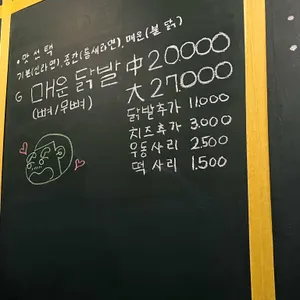 • 맛 선택
기본(신라면), 중간(틈새라면), 매운(불닭)
G 매운 닭발 中 20.000
(뼈/무뼈) 大 27.000
닭발추가 11.000
치즈추가 3.000
우동사리 2.500
떡사리 1.500